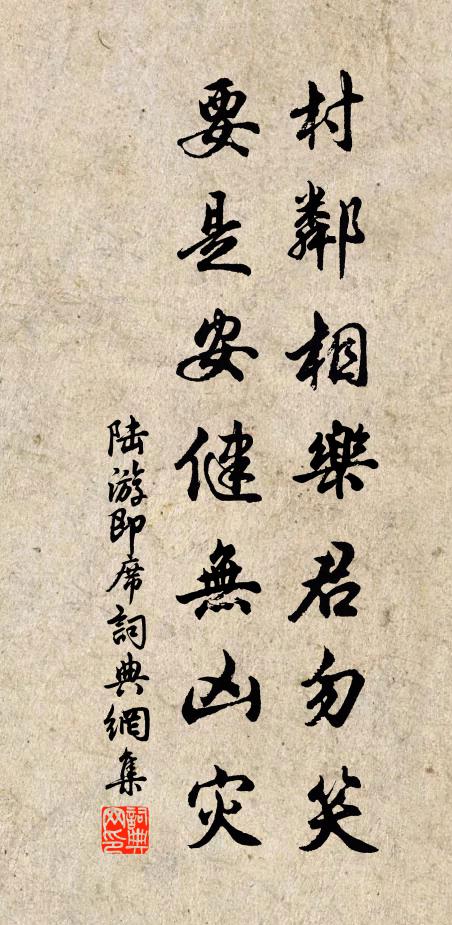 村鄰相樂君勿笑
要是安健無凶灾
陸游即席詞典網集
詞典網印